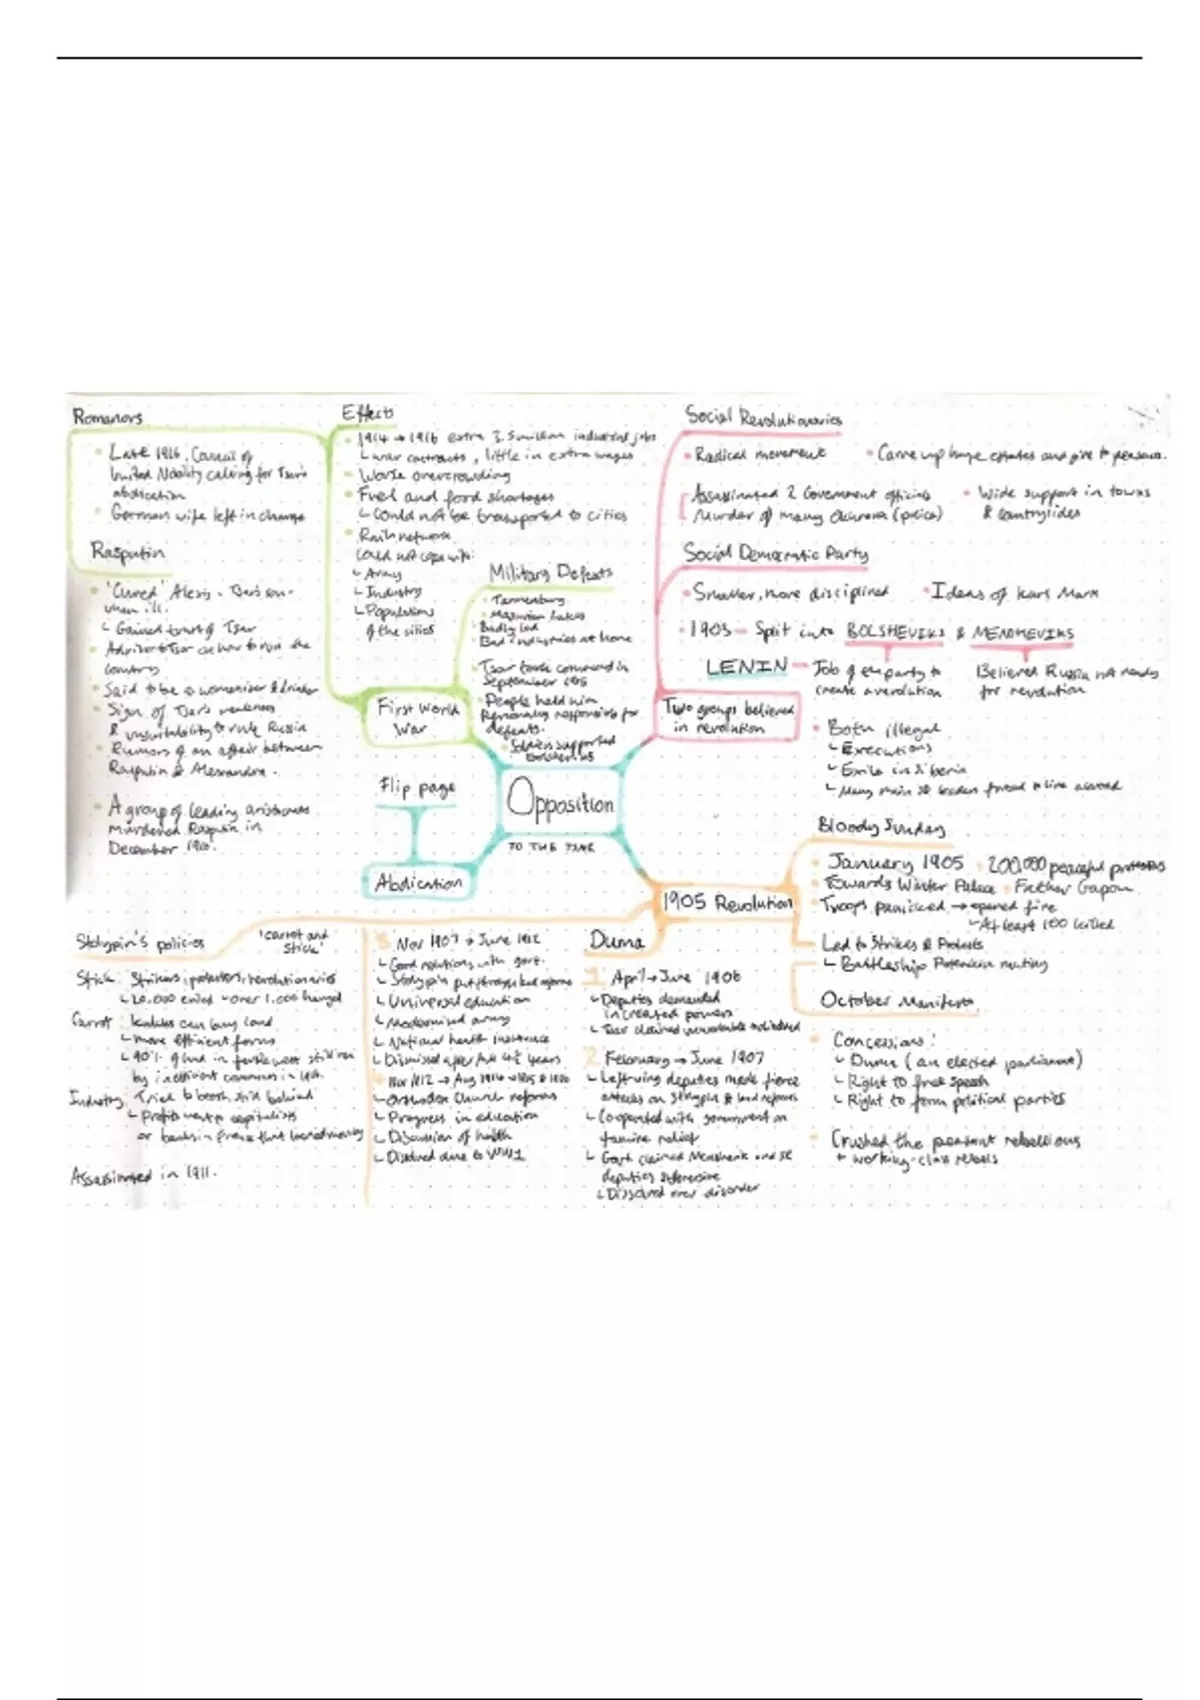 Romanovs
Late 1916, Council of
United Nobility calling for Tsar's
abdication
German wife left in charge
Rasputin
'Cured' Alexis - Tsar's son -
when ill.
Gained trust of Tsar
Advisor to Tsar on how to run the
country
Said to be a womaniser & drinker
Sign of Tsar's weakness
& unsuitability to rule Russia
Rumors of an affair between
Rasputin & Alexandra.
A group of leading aristocrats
murdered Rasputin in
December 1916.
Effects
1914 → 1916 extra 3.5 million industrial jobs
war contracts, little in extra wages
Worse overcrowding
Fuel and food shortages
Could not be transported to cities
Rail network
could not cope with:
Army
Industry
Populations
of the cities
Military Defeats
Tannenburg
Masurian Lakes
Badly led
Bad industries at home
Tsar took command in
September 1915
People held him
personally responsible for
defeats.
Soldiers supported
Bolsheviks
First World
War
Social Revolutionaries
Radical movement
Carve up huge estates and give to peasants.
Assassinated 2 Government officials
Murder of many Okhrana (police)
Wide support in towns
& countrysides
Social Democratic Party
Smaller, more disciplined
Ideas of Karl Marx
1903 - Split into BOLSHEVIKS & MENSHEVIKS
LENIN
Job of the party to
create a revolution
Believed Russia not ready
for revolution
Two groups believed
in revolution
Both illegal
Executions
Exile in Siberia
Many main SR leaders forced to live abroad
Flip page
Abdication
Opposition
TO THE TSAR
1905 Revolution
Bloody Sunday
January 1905
200,000 peaceful protesters
Towards Winter Palace
Father Gapon
Troops panicked → opened fire
At least 100 killed
Led to Strikes & Protests
Battleship Potemkin mutiny
October Manifesto
Concessions:
Duma (an elected parliament)
Right to free speech
Right to form political parties
Crushed the peasant rebellions
+ working-class rebels
Duma
1 April → June 1906
Deputies demanded
increased powers
Tsar claimed
2 February → June 1907
Left-wing deputies made fierce
attacks on Stolypin & land reforms
Co-operated with government on
famine relief
Govt claimed Menshevik and SR
deputies subversive
Dissolved over disorder
3 Nov 1907 → June 1912
Good relations with govt.
Stolypin put through land reforms
Universal education
Modernised army
National health insurance
Dismissed after years
Nov 1912 → Aug 1914
Orthodox Church reforms
Progress in education
Discussion of health
Dissolved due to WW1
Stolypin's policies
'carrot and
stick'
Stick: Strikers, protestors, revolutionaries
20,000 exiled - over 1,000 hanged
Carrot: kulaks can buy land
more efficient farms
90% of land in still run
by inefficient communes in 1916.
Industry: Tried to boost, still behind
Profits went to capitalists
or banks in France that loaned money
Assassinated in 1911.